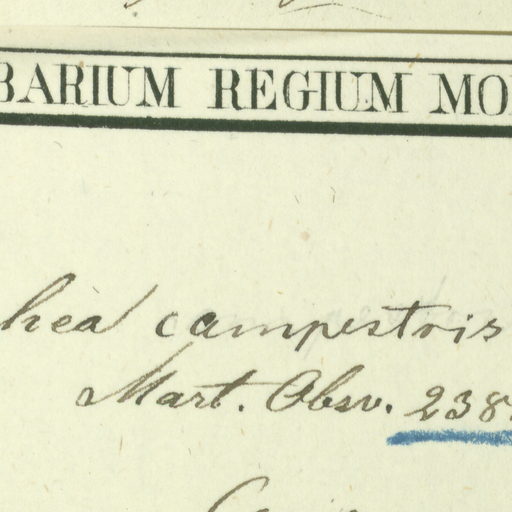 BARIUM REGIUM MO
hea campestris
Mart. Obsv. 238